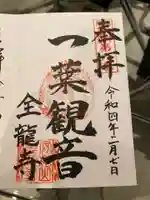 奉拝
令和四年二月七日
一葉観音
全龍寺